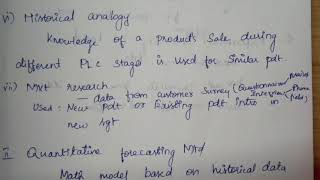 vi) Historical analogy
Knowledge of a products Sale during
different PLC stage is Used for Similar pdt.
vii) Mkt research
– data from customer Survey (Questionnaire
Interview Phone
Used: New pdt or Existing pdt intro in
new sgt
II Quantitative forecasting Mtd
Math model based on historical data